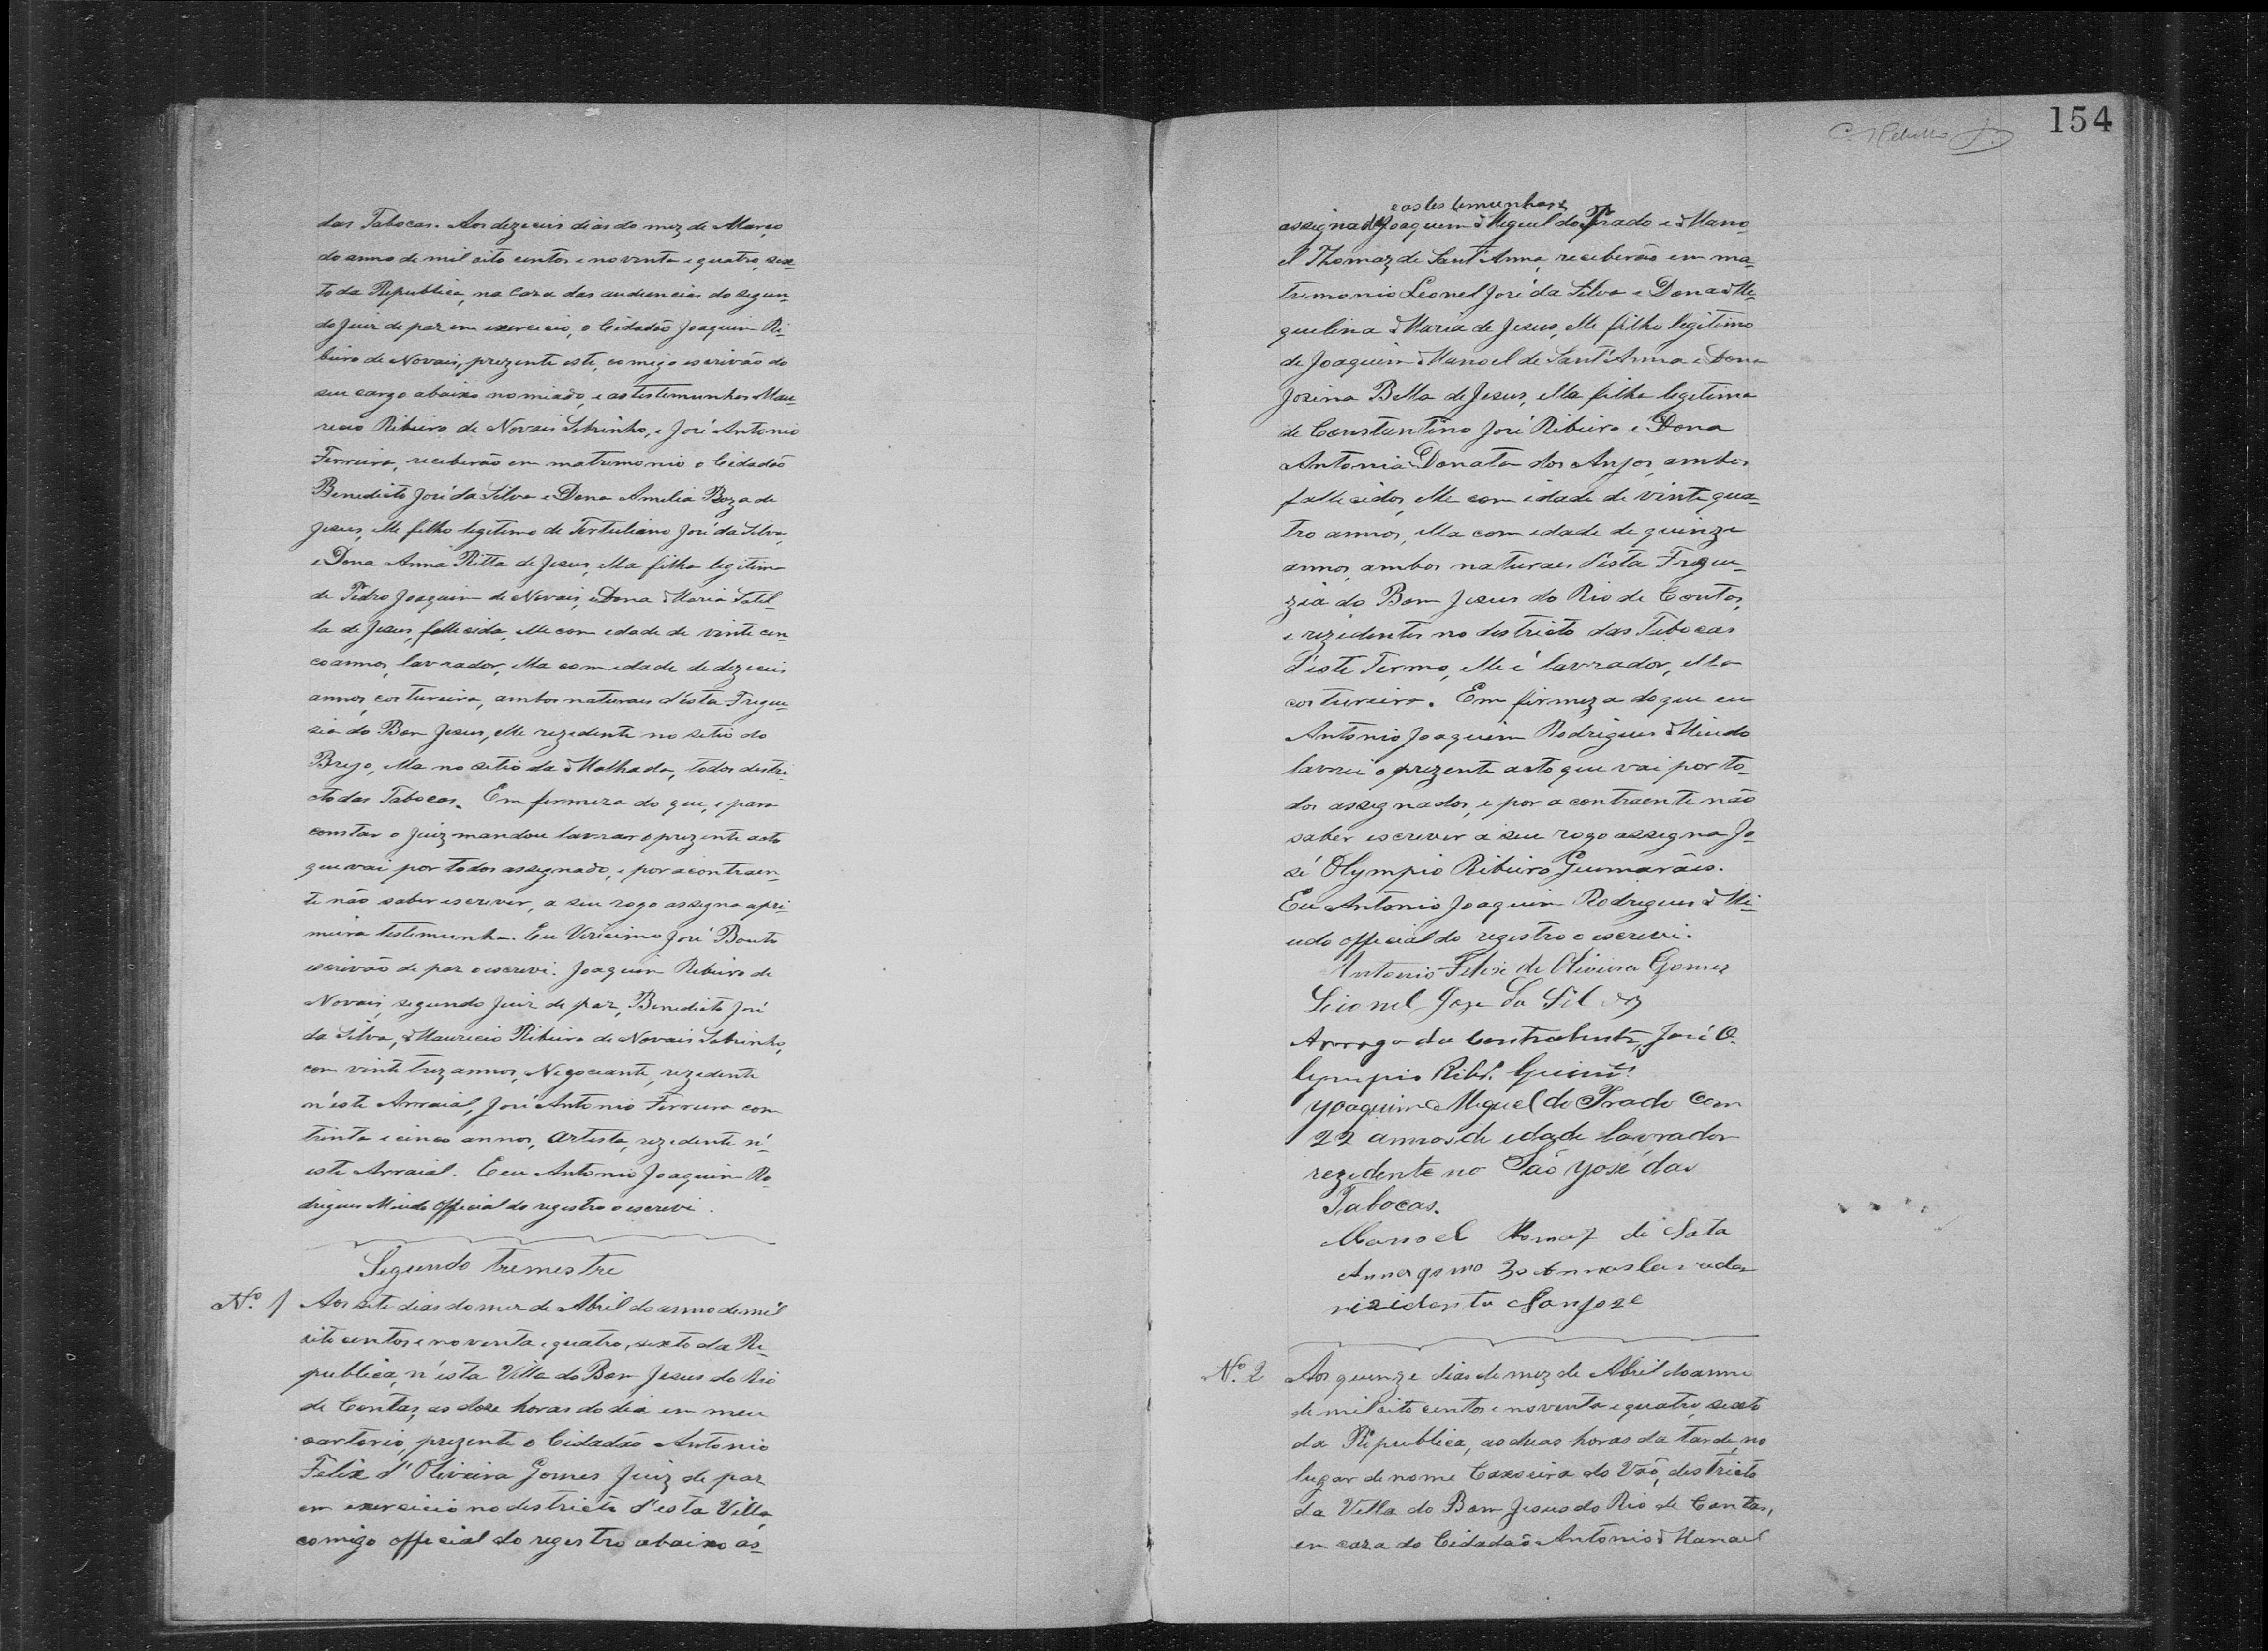 das Tabocas. Aos dezeceis dias do mez de Março
do anno de mil oito centos e noventa e quatro, sex-
to da Republica, na caza das audiencias do segun-
do Juiz de paz em exercicio, o Cidadão Joaquim Ri-
beiro de Novais, prezente este, comigo escrivão do
seu cargo abaixo nomiado, e as testemunhas Mau-
ricio Ribeiro de Novais Sobrinho, e José Antonio
Ferreira, receberão em matrimonio o Cidadão
Benedicto José da Silva e Dona Amelia Roza de
Jesus, elle filho legitimo de Tertuliano José da Silva,
e Dona Anna Ritta de Jesus, ella filha legitima
de Pedro Joaquim de Novais, e Dona Maria
la de Jesus, fallecida, elle com edade de vinte cin-
co annos, lavrador, ella com edade de dezeceis
annos, costureira, ambos naturaes d'ésta Fregue-
sia do Bom Jesus, elle rezedente no sitio do
Brejo, ella no sitio da Malhada, todos destri-
cto das Tabocas. Em firmeza do que, e para
constar o Juiz mandou lavrar o prezente acto
que vai por todos assegnado, e por a contraen-
te não saber escrever, a seu rogo assegna a pri-
meira testemunha. Eu Viricimo José Bouto
escrivão de paz o escrevi. Joaquim Ribeiro de
Novais, segundo Juiz de paz, Benedicto José
da Silva, Mauricio Ribeiro de Novais Sobrinho,
com vinte trez annos, Negociante, rezedente
n'éste Arraial, José Antonio Ferreira com
trinta e cinco annos, Artista, rezedente n'-
este Arraial. E eu Antonio Joaquim Ro-
drigues Miudo Official do registro o escrevi.
Segundo tremestre
Nº. 1 Aos sete dias do mez de Abril do anno de mil
oito centos e noventa e quatro, sexto da Re-
publica, n'ésta Villa do Bom Jesus do Rio
de Contas, as doze horas do dia em meu
cartorio, prezente o Cidadão Antonio
Felix d'Oliveira Gomes Juiz de paz
em exercicio no destricto d'esta Villa,
comigo official do registro abaixo as-
154
e as testemunhas
assignado Joaquim Miguel do Prado e Mano-
el Thomaz de Sant'Anna, receberão em ma-
tremonio Leonel José da Silva e Dona Mi-
guelina Maria de Jesus, elle filho legitimo
de Joaquim Manoel de Sant'Anna e Dona
Jozina Bella de Jesus, ella filha legitima
de Constantino José Ribeiro e Dona
Antonia Donata dos Anjos, ambos
fallecidos, elle com idade de vinte qua-
tro annos, ella com edade de quinze
annos, ambos naturaes d'ésta Fregue-
zia do Bom Jesus do Rio de Contas,
e rezedentes no destricto das Tabocas
d'éste Termo, elle é lavrador, ella
costureira. Em firmeza do que eu
Antonio Joaquim Rodrigues Miudo
lavrei o prezente acto que vai por to-
dos assegnados, e por a contraente não
saber escrever a seu rogo assegna Jo-
sé Olympio Ribeiro Guimarães.
Eu Antonio Joaquim Rodrigues Mi-
udo official do registro o escrevi.
Antonio Felix de Oliveira Gomes
Leionel Jose da Silva
Arrogo da Contrahente, José O-
lympio Ribr.º Guimes
Yoaquim Miguel do Prado Com
22 annos de edade lavrador
rezedente no São Yosé das
Tabocas.
Manoel Thomaz de Sata
Anna 30 Annos
Sanjoze
Nº. 2 Aos quinze dias do mez de Abril do anno
de mil oito centos e noventa e quatro, sexto
da Republica, as duas horas da tarde, no
lugar de nome Caxoeira do Váo, destricto
da Villa do Bom Jesus do Rio de Contas,
em caza do Cidadão Antonio Manoel